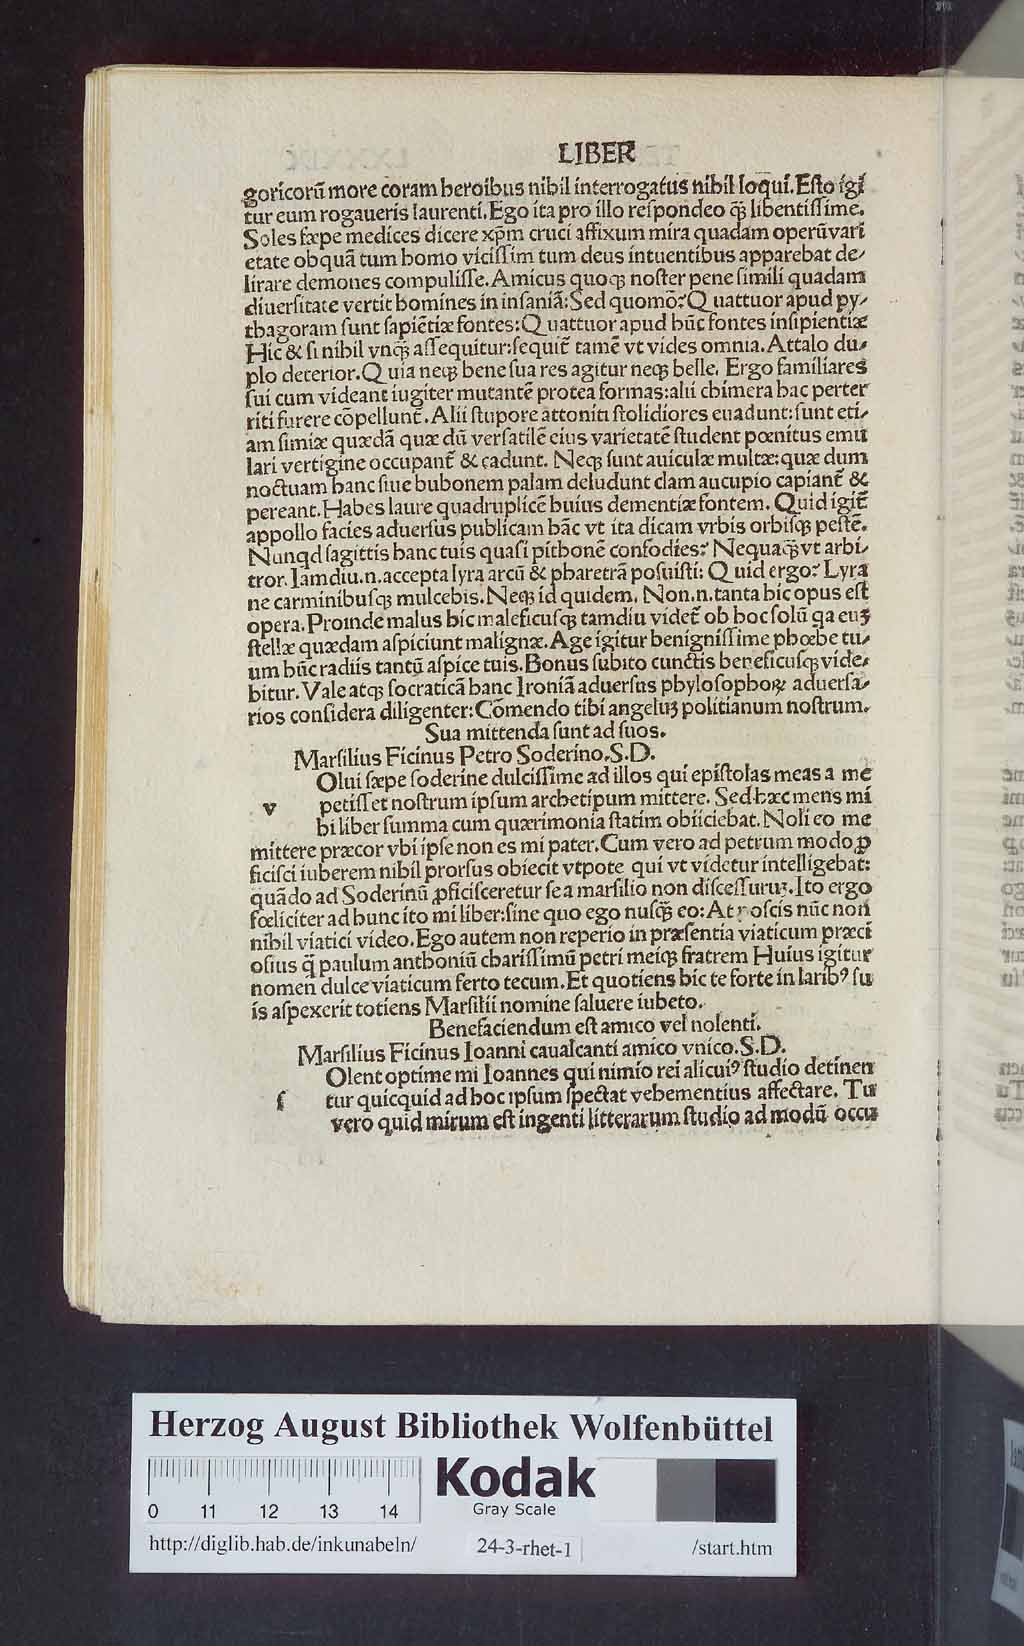 LIBER
goricorū more coram heroibus nihil interrogatus nihil loqui. Esto igi
tur eum rogaueris laurenti. Ego ita pro illo respondeo q̄ꝫ libentissime.
Soles sæpe medices dicere xp̄m cruci affixum mira quadam operū vari
etate obquā tum homo vicissim tum deus intuentibus apparebat de⸗
lirare demones compulisse. Amicus quoqꝫ noster pene simili quadam
diuersitate vertit homines in insaniā: Sed quomō? Quattuor apud py⸗
thagoram sunt sapiētiæ fontes: Quattuor apud hūc fontes insipientiæ
Hic & si nihil vnq̄ꝫ assequitur: sequit̄ tamē vt vides omnia. Attalo du⸗
plo deterior. Quia neqꝫ bene sua res agitur neqꝫ belle. Ergo familiares
sui cum videant iugiter mutantē protea formas: alii chimera hac perter
riti furere cōpellunt̄. Alii stupore attoniti stolidiores euadunt: sunt eti⸗
am simiæ quædā quæ dū versatilē eius varietatē student pœnitus emu
lari vertigine occupant̄ & cadunt. Neqꝫ sunt auiculæ multæ: quæ dum
noctuam hanc siue bubonem palam deludunt clam aucupio capiant̄ &
pereant. Habes laure quadruplicē huius dementiæ fontem. Quid igit̄
appollo facies aduersus publicam hāc vt ita dicam vrbis orbisqꝫ pestē.
Nunqd sagittis hanc tuis quasi pithonē confodies? Nequaq̄ꝫ vt arbi⸗
tror. Iamdiu .n. accepta lyra arcū & pharetrā posuisti: Quid ergo? Lyra
ne carminibusqꝫ mulcebis. Neqꝫ id quidem. Non .n. tanta hic opus est
opera. Proinde malus hic maleficusqꝫ tamdiu videt̄ ob hoc solū qa euꝫ
stellæ quædam aspiciunt malignæ. Age igitur benignissime phœbe tu⸗
um hūc radiis tantū aspice tuis. Bonus subito cunctis beneficusqꝫ vide⸗
bitur. Vale atqꝫ socraticā hanc Ironiā aduersus phylosophoꝝ aduersa⸗
rios considera diligenter: Cōmendo tibi angeluꝫ politianum nostrum.
Sua mittenda sunt ad suos.
Marsilius Ficinus Petro Soderino. S. D.
Olui sæpe soderine dulcissime ad illos qui epistolas meas a me
v petisset nostrum ipsum archetipum mittere. Sed hæc mens mi
hi liber summa cum quærimonia statim obiiciebat. Noli eo me
mittere præcor vbi ipse non es mi pater. Cum vero ad petrum modo ꝓ
ficisci iuberem nihil prorsus obiecit vtpote qui vt videtur intelligebat:
quādo ad Soderinū ꝓficisceretur se a marsilio non discessuruꝫ. Ito ergo
fœliciter ad hunc ito mi liber: sine quo ego nusq̄ꝫ eo: At noscis nūc non
nihil viatici video. Ego autem non reperio in præsentia viaticum præci
osius q̄ꝫ paulum anthoniū charissimū petri meiqꝫ fratrem Huius igitur
nomen dulce viaticum ferto tecum. Et quotiens hic te forte in laribꝰ su
is aspexerit totiens Marsilii nomine saluere iubeto.
Benefaciendum est amico vel nolenti.
Marsilius Ficinus Ioanni caualcanti amico vnico. S. D.
Olent optime mi Ioannes qui nimio rei alicuiꝰ studio detinen
ſ tur quicquid ad hoc ipsum spectat vehementius affectare. Tu
vero quid mirum est ingenti litterarum studio ad modū occu
Herzog August Bibliothek Wolfenbüttel
Kodak
Gray Scale
0 11 12 13 14
http://diglib.hab.de/inkunabeln/ 24-3-rhet-1 /start.htm